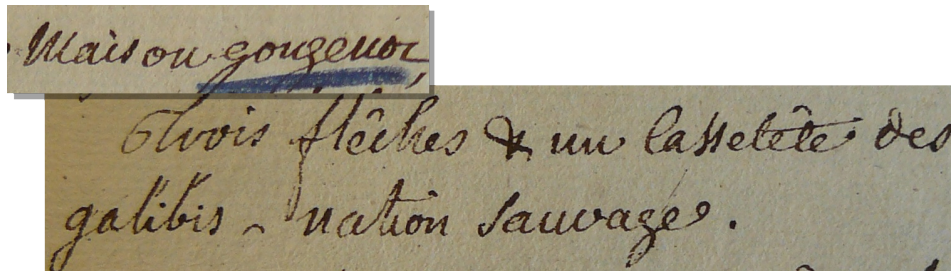 Maison gougenot
Trois flêches & un Cassetête des
galibis - nation sauvage.